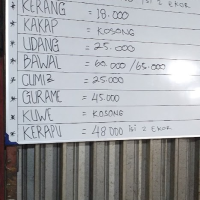 isi 2 EKOR
* KERANG = 18.000
* KAKAP = KOSONG
* UDANG = 25.000
* BAWAL = 60.000 / 65.000
* CUMI2 = 25.000
* GURAME = 45.000
* KUWE = KOSONG
* KERAPU = 48.000 isi 2 EKOR